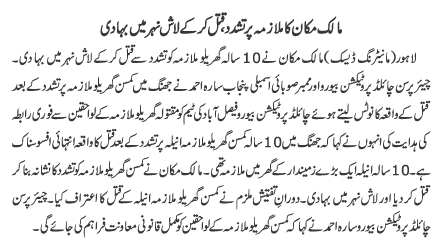 مالک مکان کا ملازمہ پر تشدد، قتل کر کے لاش نہر میں بہا دی
لاہور (مانیٹرنگ ڈیسک) مالک مکان نے 10 سالہ گھریلو ملازمہ کو تشدد سے قتل کر کے لاش نہر میں بہا دی۔
چیئر پرسن چائلڈ پروٹیکشن بیورو و ممبر صوبائی اسمبلی پنجاب سارہ احمد نے جھنگ میں کمسن گھریلو ملازمہ پر تشدد کے بعد
قتل کے واقعہ کا نوٹس لیتے ہوئے چائلڈ پروٹیکشن بیورو فیصل آباد کی ٹیم کو مقتولہ گھریلو ملازمہ کے لواحقین سے فوری رابطہ
کی ہدایت کی انہوں نے کہا کہ جھنگ میں 10 سالہ کمسن گھریلو ملازمہ انیلہ پر تشدد کے بعد قتل کا واقعہ انتہائی افسوسناک
ہے۔ 10 سالہ انیلہ ایک بڑے زمیندار کے گھر میں ملازمہ تھی۔ مالک مکان نے کمسن گھریلو ملازمہ کو تشدد کا نشانہ بنا کر
قتل کر دیا اور لاش نہر میں بہا دی۔ دوران تفتیش ملزم نے کمسن گھریلو ملازمہ انیلہ کے قتل کا اعتراف کیا۔ چیئر پرسن
چائلڈ پروٹیکشن بیورو سارہ احمد نے کہا کہ کمسن گھریلو ملازمہ کے لواحقین کو مکمل قانونی معاونت فراہم کی جائے گی۔